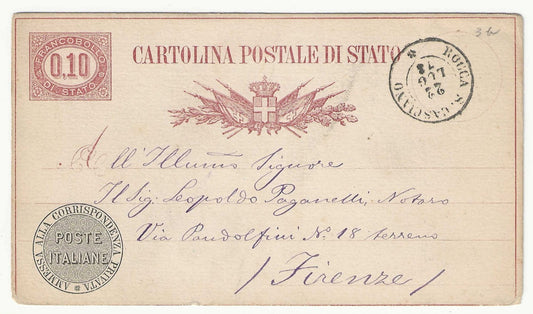 FRANCOBOLLO
0,10
DI STATO
CARTOLINA POSTALE DI STATO
ROCCA S. CASCIANO
22
LUG
78
All'Illumo Signore
Il Sig: Leopoldo Paganelli, Notaro
Via Pandolfini No. 18 terreno
/ Firenze /
AMMESSA ALLA CORRISPONDENZA PRIVATA
POSTE
ITALIANE